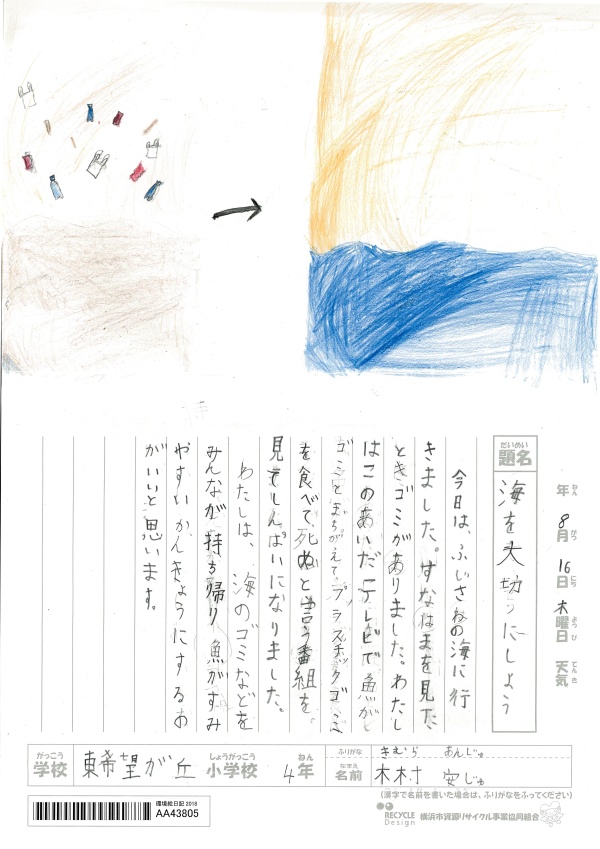 年 8月 16日 木曜日 天気
ねん がつ にち ようび てんき
だいめい
題名 海を大切にしよう
今日は、ふじさわの海に行
きました。すなはまを見た
ときゴミがありました。わたし
はこのあいだテレビで魚が
ゴミとまちがえてプラスチックゴミ
を食べて死ぬと言う番組を
見てしんぱいになりました。
わたしは、海のゴミなどを
みんなが持ち帰り魚がすみ
やすいかんきょうにするお
がいいと思います。
がっこう しょうがっこう ねん
学校 東希望が丘 小学校 4年
ふりがな きむら あんじゅ
なまえ
名前 木村 安じゅ
(漢字で名前を書いた場合は、ふりがなをふってください)
環境絵日記 2018
AA43805
RECYCLE Design 横浜市資源リサイクル事業協同組合